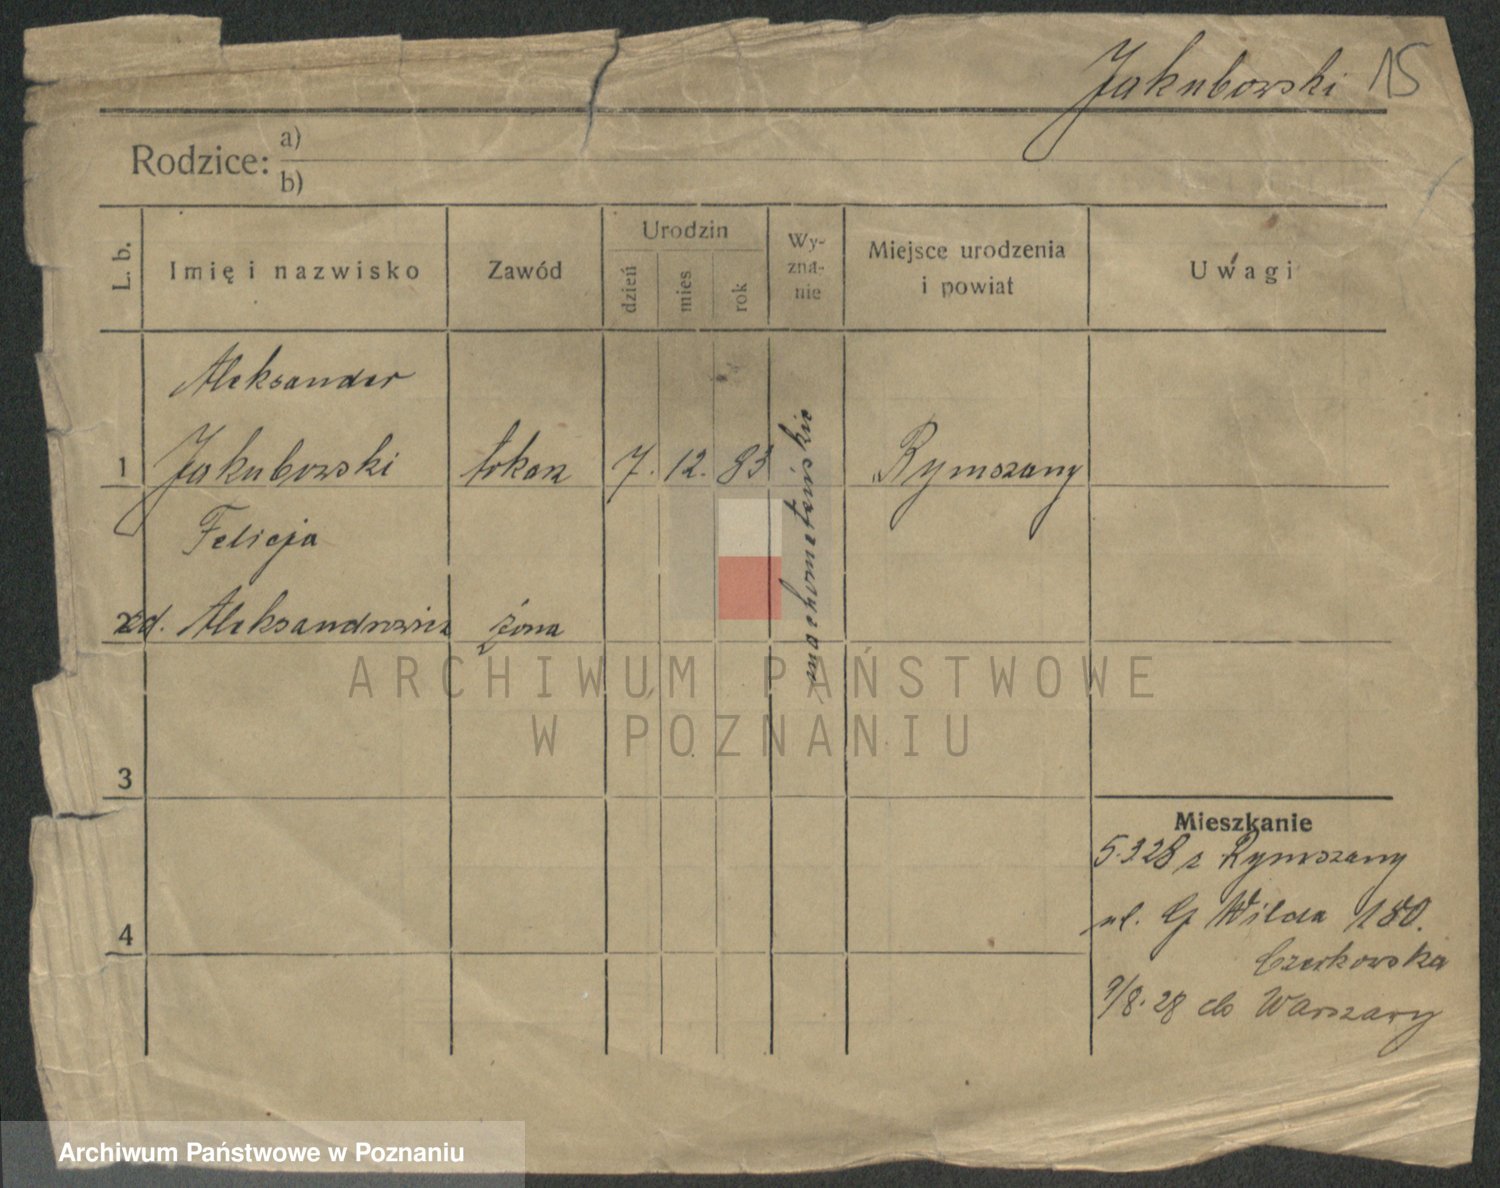 Jakubowski 15
Rodzice: a)
b)
L. b.
Imię i nazwisko
Zawód
Urodzin
dzień
mies
rok
Wy-
zna-
nie
Miejsce urodzenia
i powiat
Uwagi
Aleksander
1 Jakubowski tokarz 7. 12. 83 Rymszany
machometańskie
Felicja
2 zd. Aleksandrowicz żona
ARCHIWUM PAŃSTWOWE
W POZNANIU
3
Mieszkanie
5.3 28 z Rymszany
ul. G Wilda 180.
4
Czerkowska
9/8.28 do Warszawy
Archiwum Państwowe w Poznaniu